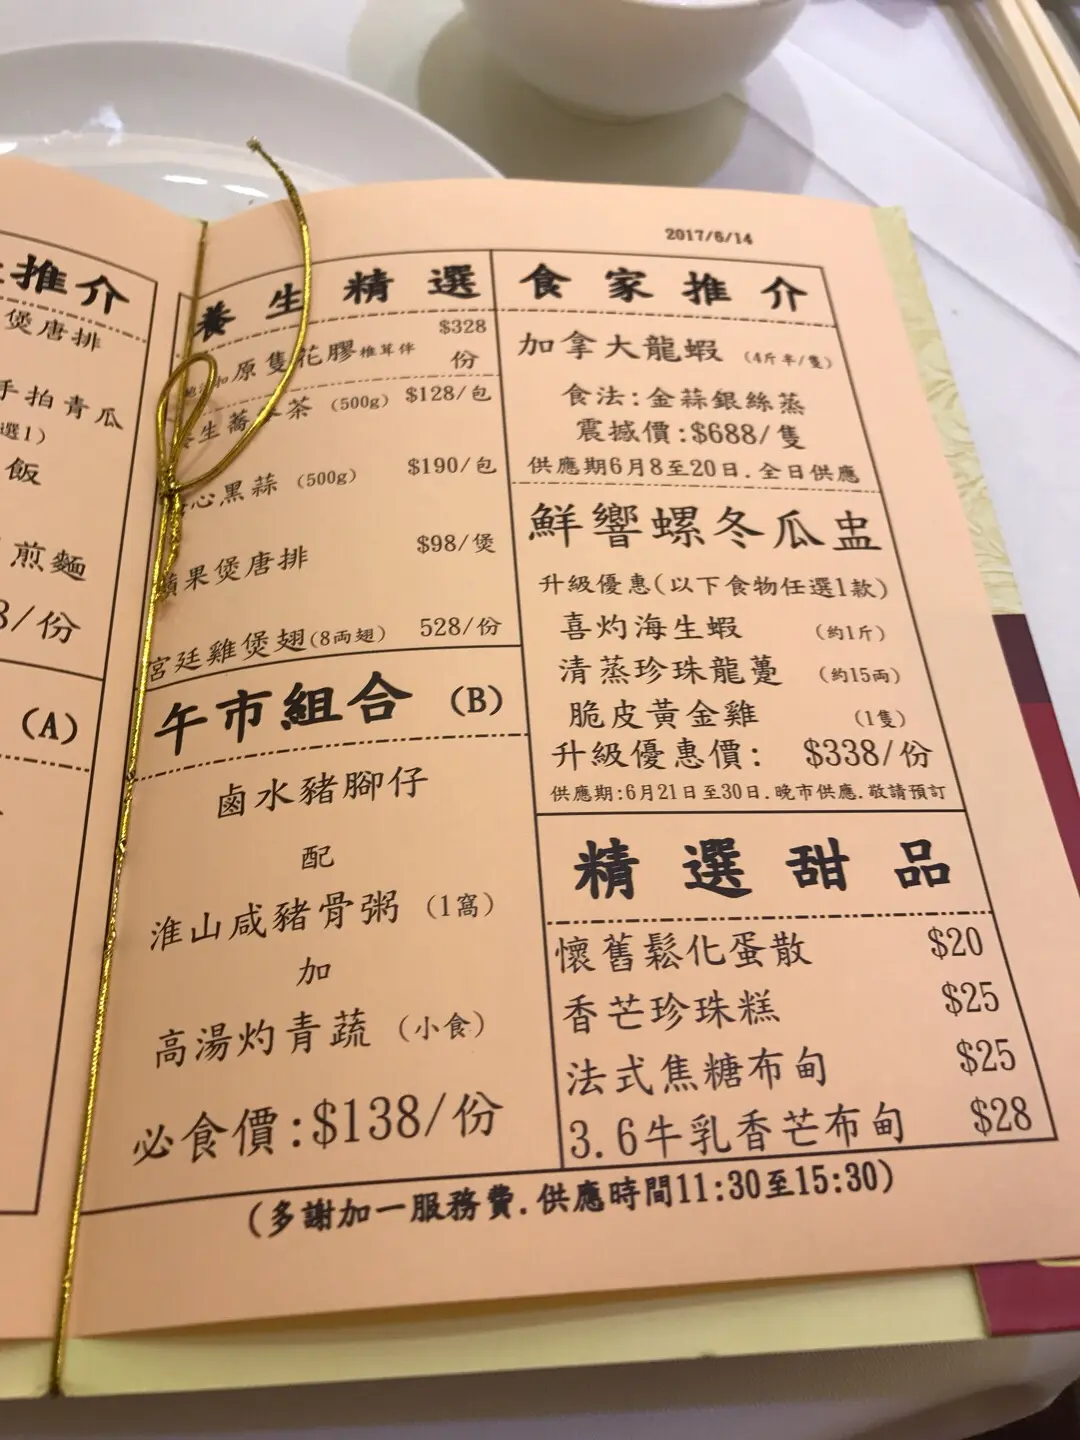 推介
煲唐排
手拍青瓜
選1)
飯
煎麵
8/份
(A)
2017/6/14
養生精選
$328
原隻花膠 份
蕎 茶 (500g) $128/包
心黑蒜 (500g) $190/包
蘋果煲唐排 $98/煲
宮廷雞煲翅(8両翅) 528/份
午市組合 (B)
鹵水豬腳仔
配
淮山咸豬骨粥 (1窩)
加
高湯灼青蔬 (小食)
必食價:$138/份
食家推介
加拿大龍蝦 (4斤半/隻)
食法:金蒜銀絲蒸
震撼價:$688/隻
供應期6月8至20日.全日供應
鮮響螺冬瓜盅
升級優惠(以下食物任選1款)
喜灼海生蝦 (約1斤)
清蒸珍珠龍躉 (約15両)
脆皮黃金雞 (1隻)
升級優惠價: $338/份
供應期:6月21日至30日.晚市供應.敬請預訂
精選甜品
懷舊鬆化蛋散 $20
香芒珍珠糕 $25
法式焦糖布甸 $25
3.6牛乳香芒布甸 $28
(多謝加一服務費.供應時間11:30至15:30)